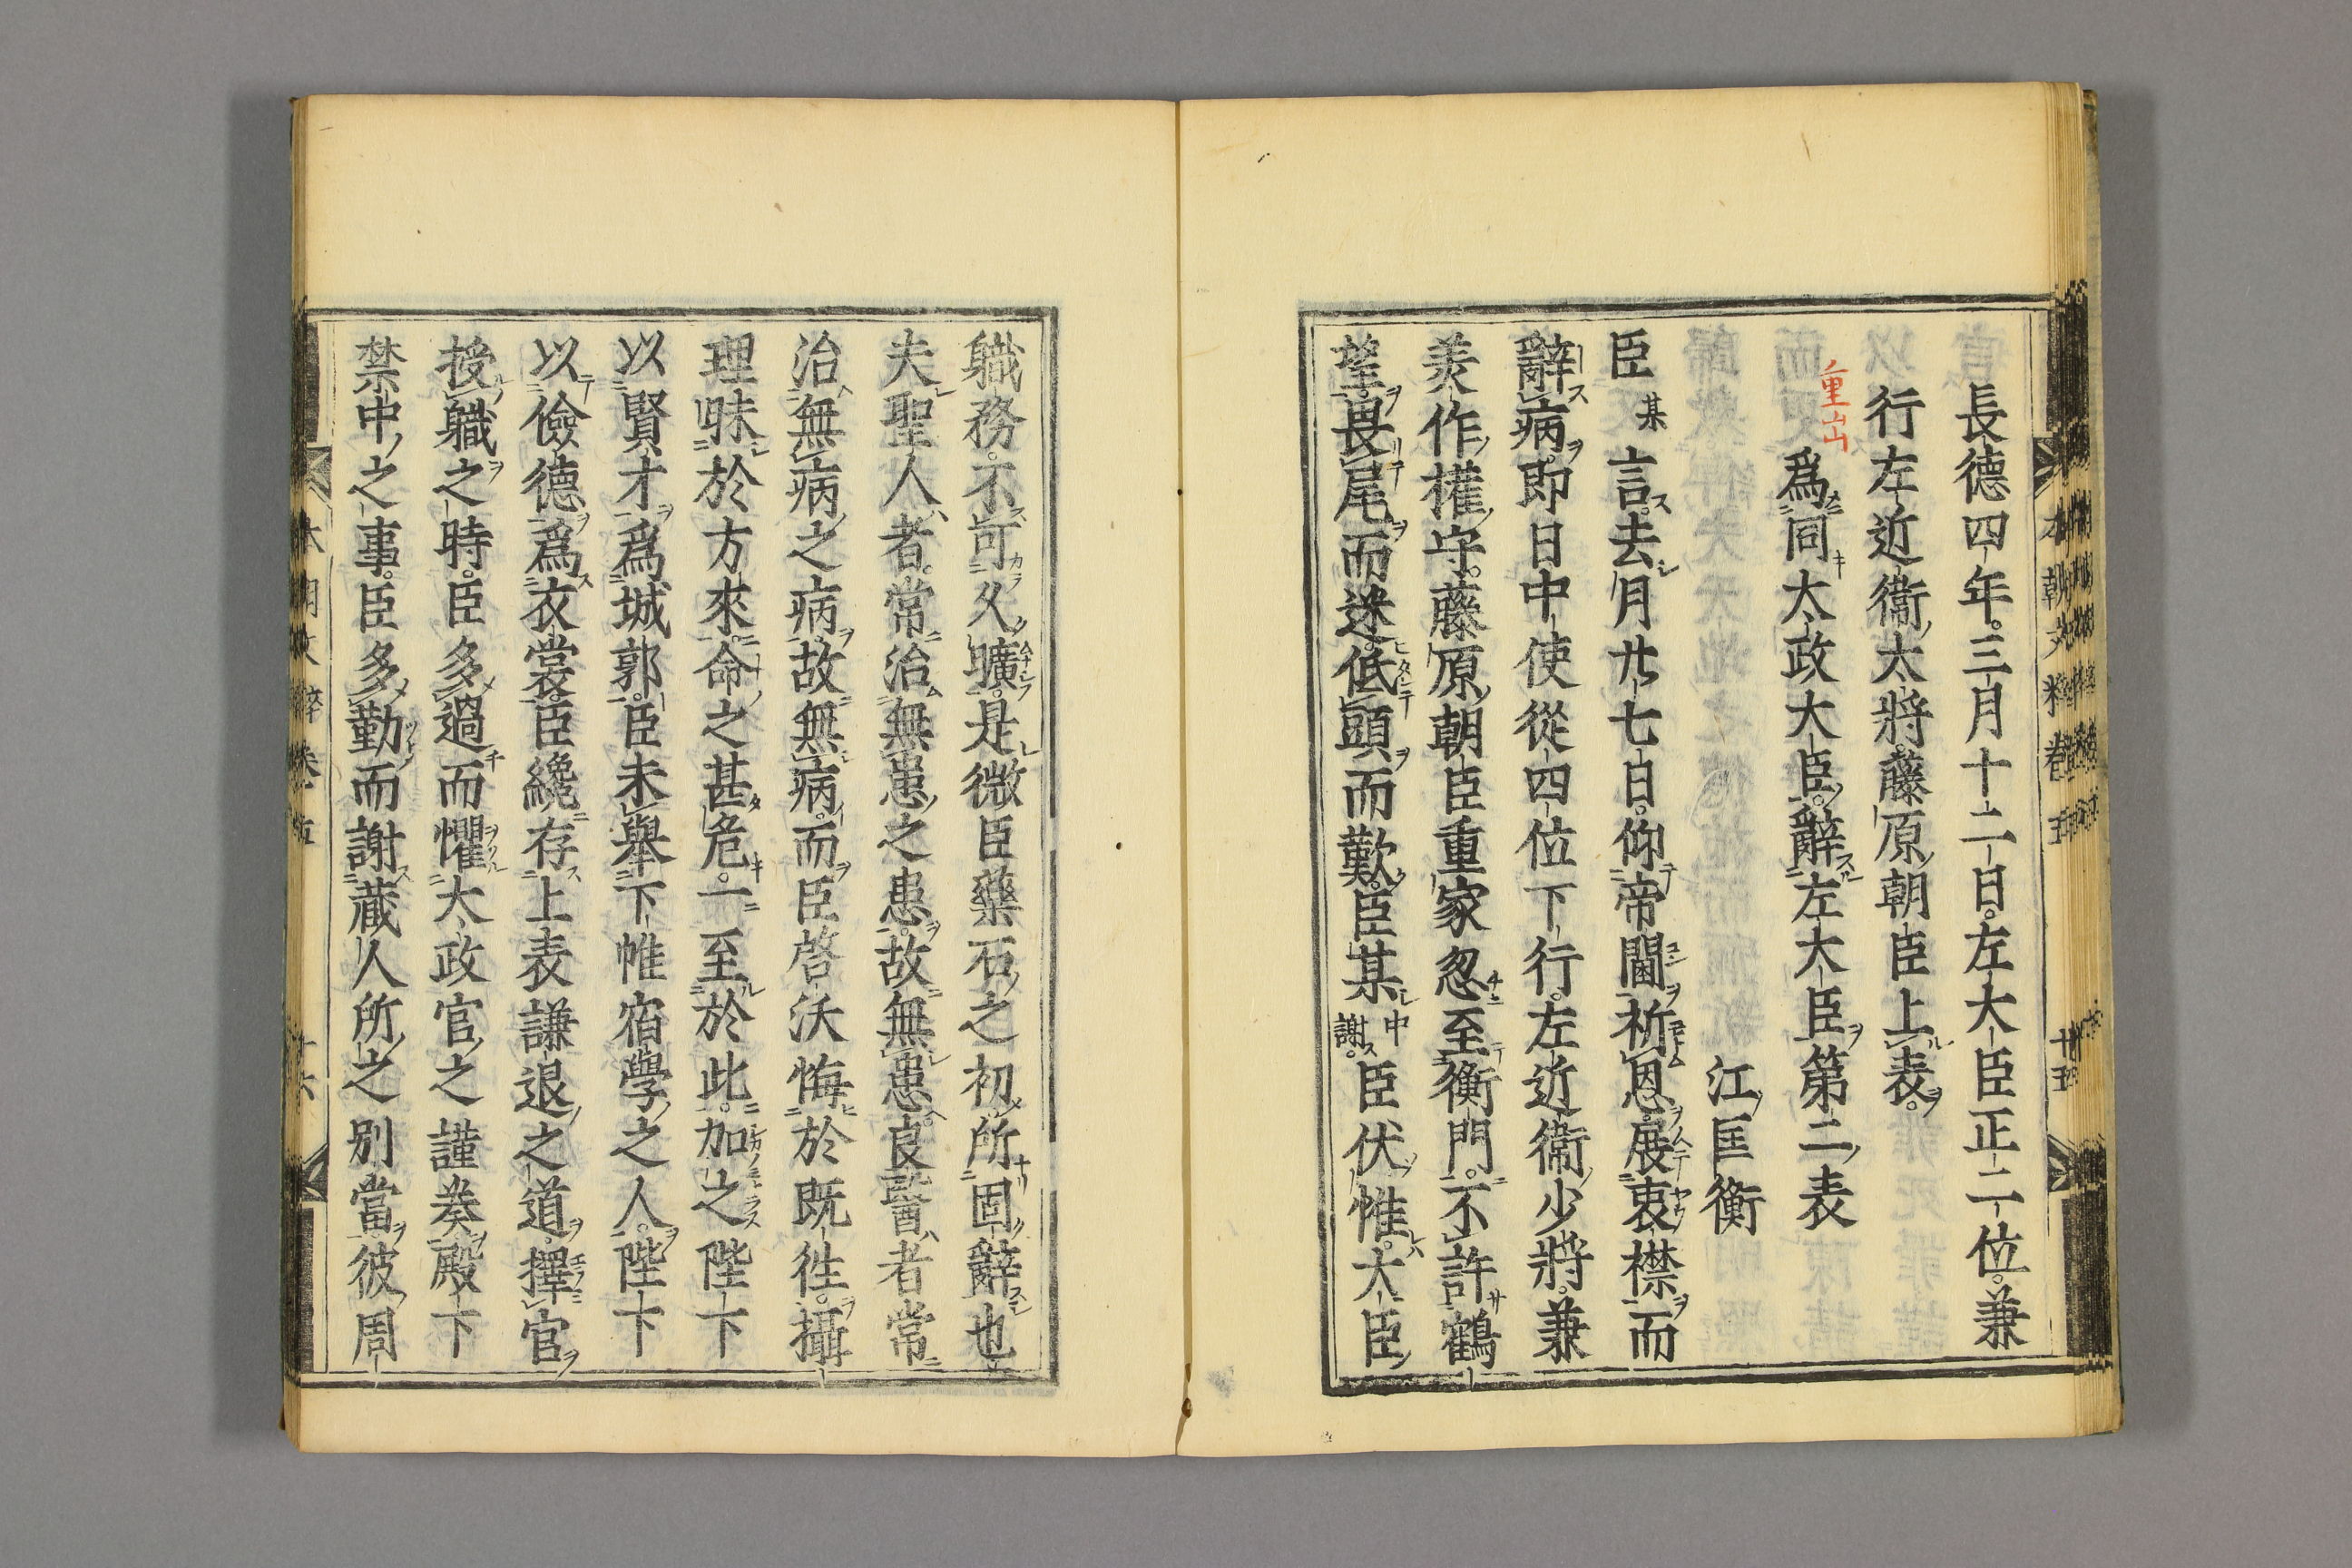 長德四年三月十二日左大臣正二位兼
行左近衞大將藤原朝臣上表
重出
爲同太政大臣辭左大臣第二表
江匡衡
臣某言去月廿七日仰帝閽祈恩展衷襟而
辭病即日中使從四位下行左近衞少將兼
美作權守藤原朝臣重家忽至衡門不許鶴
望畏尾而迷低頭而歎臣某中謝臣伏惟大臣
職務不可久曠是微臣藥石之初所固辭也
夫聖人者常治無患之患故無患良醫者常
治無病之病故無病而臣啓沃悔於既往攝
理昧於方來命之甚危一至於此加之陛下
以賢才爲城郭臣未舉下帷宿學之人陛下
以儉德爲衣裳臣纔存上表謙退之道擇官
授職之時臣多過而懼太政官之謹奏殿下
禁中之事臣多勤而謝藏人所之別當彼周
本朝文粹卷五
廿五